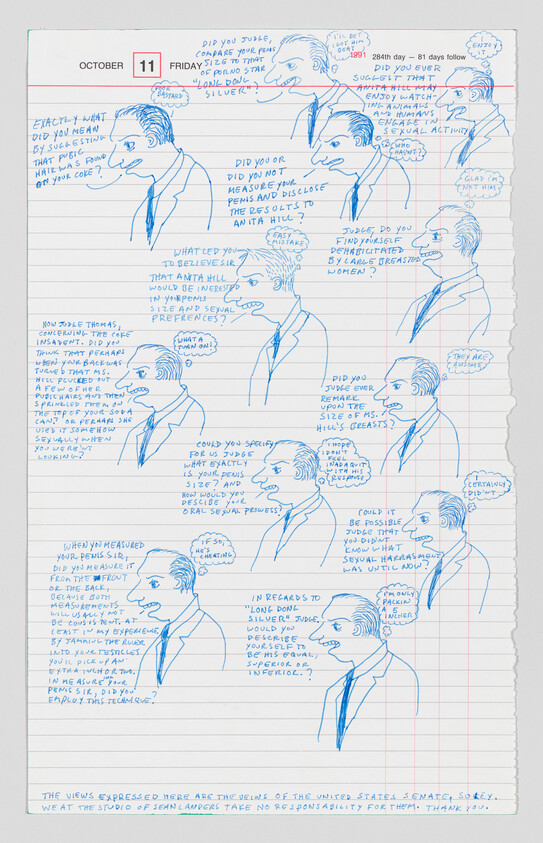 OCTOBER 11 FRIDAY
1991 284th day — 81 days follow
DID YOU JUDGE,
COMPARE YOUR PENIS
SIZE TO THAT
OF PORNO STAR
"LONG DONG
SILVER"?
I'LL BET
I GOT HIM
BEAT
DID YOU EVER
SUGGEST THAT
ANITA HILL MAY
ENJOY WATCH-
ING ANIMALS
AND HUMANS
ENGAGE IN
SEXUAL ACTIVITY
I
ENJOY
IT
EXACTLY WHAT
DID YOU MEAN
BY SUGGESTING
THAT PUBIC
HAIR WAS FOUND
ON YOUR COKE?
POOR
BASTARD
DID YOU OR
DID YOU NOT
MEASURE YOUR
PENIS AND DISCLOSE
THE RESULTS TO
ANITA HILL?
WHO
HASN'T?
JUDGE, DO YOU
FIND YOURSELF
DEHABILITATED
BY LARGE BREASTED
WOMEN?
GLAD I'M
NOT HIM
WHAT LED YOU
TO BELIEVE SIR
THAT ANITA HILL
WOULD BE INTERESTED
IN YOUR PENIS
SIZE AND SEXUAL
PREFRENCES?
EASY
MISTAKE
NOW JUDGE THOMAS,
CONCERNING THE COKE
INSADENT. DID YOU
THINK THAT PERHAPS
WHEN YOUR BACK WAS
TURNED THAT MS.
HILL PLUCKED OUT
A FEW OF HER
PUBIC HAIRS AND THEN
SPRINKLED THEM ON
THE TOP OF YOUR SODA
CAN? OR PERHAPS SHE
USED IT SOMEHOW
SEXUALLY WHEN
YOU WEREN'T
LOOKING?
WHAT A
TURN ON!
DID YOU
JUDGE EVER
REMARK
UPON THE
SIZE OF MS.
HILL'S BREASTS?
THEY ARE
AWESOME
COULD YOU SPECIFY
FOR US JUDGE
WHAT EXACTLY
IS YOUR PENIS
SIZE? AND
HOW WOULD YOU
DESCIBE YOUR
ORAL SEXUAL PROWESS?
I HOPE
I DON'T
FEEL
INADAQUIT
WITH HIS
RESPONSE
COULD IT
BE POSSIBLE
JUDGE THAT
YOU DIDN'T
KNOW WHAT
SEXUAL HARRASMENT
WAS UNTIL NOW?
I
CERTAINLY
DIDN'T
WHEN YOU MEASURED
YOUR PENIS SIR,
DID YOU MEASURE IT
FROM THE FRONT
OR THE BACK,
BECAUSE BOTH
MEASUREMENTS
WILL USUALLY NOT
BE CONSISTENT. AT
LEAST IN MY EXPERIENCE,
BY JAMMING THE RULER
INTO YOUR TESTICLES
YOU'LL PICK UP AN
EXTRA INCH OR TWO.
IN MEASURING YOUR
PENIS SIR, DID YOU
EMPLOY THIS TECHNIQUE?
IF SO,
HE'S
CHEATING
IN REGARDS TO
"LONG DONG
SILVER" JUDGE,
WOULD YOU
DESCRIBE
YOURSELF TO
BE HIS EQUAL,
SUPERIOR OR
INFERIOR.?
I'M ONLY
PACKIN
A 5
INCHER
THE VIEWS EXPRESSED HERE ARE THE VEIWS OF THE UNITED STATES SENATE, SORRY.
WE AT THE STUDIO OF SEAN LANDERS TAKE NO RESPONSABILITY FOR THEM. THANK YOU.